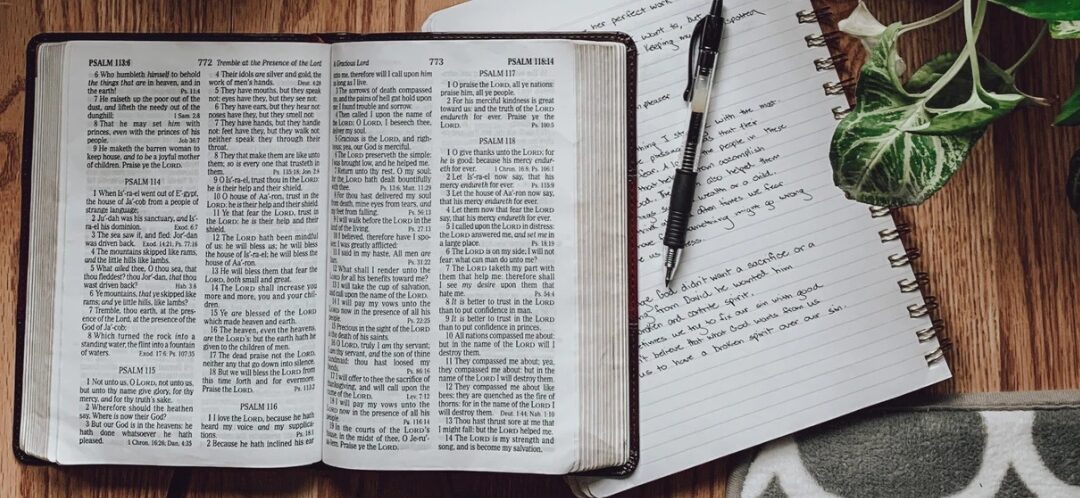 PSALM 113:6
772
Tremble at the Presence of the Lord
6 Who humbleth himself to behold
the things that are in heaven, and in
the earth! Ps. 11:4
7 He raiseth up the poor out of the
dust, and lifteth the needy out of the
dunghill; 1 Sam. 2:8
8 That he may set him with
princes, even with the princes of
his people. Job 36:7
9 He maketh the barren woman to
keep house, and to be a joyful mother
of children. Praise ye the LORD.
PSALM 114
1 When Is'-ra-el went out of E'-gypt,
the house of Ja'-cob from a people of
strange language;
2 Ju'-dah was his sanctuary, and Is'-
ra-el his dominion. Exod. 6:7
3 The sea saw it, and fled: Jor'-dan
was driven back. Exod. 14:21, Ps. 77:16
4 The mountains skipped like rams,
and the little hills like lambs.
5 What ailed thee, O thou sea, that
thou fleddest? thou Jor'-dan, that thou
wast driven back? Hab. 3:8
6 Ye mountains, that ye skipped like
rams; and ye little hills, like lambs?
7 Tremble, thou earth, at the pres-
ence of the Lord, at the presence of the
God of Ja'-cob;
8 Which turned the rock into a
standing water, the flint into a fountain
of waters. Exod. 17:6; Ps. 107:35
PSALM 115
1 Not unto us, O LORD, not unto us,
but unto thy name give glory, for thy
mercy, and for thy truth's sake.
2 Wherefore should the heathen
say, Where is now their God?
3 But our God is in the heavens: he
hath done whatsoever he hath
pleased. 1 Chron. 16:26; Dan. 4:35
4 Their idols are silver and gold, the
work of men's hands. Deut. 4:28
5 They have mouths, but they speak
not: eyes have they, but they see not:
6 They have ears, but they hear not:
noses have they, but they smell not:
7 They have hands, but they handle
not: feet have they, but they walk not:
neither speak they through their
throat.
8 They that make them are like unto
them; so is every one that trusteth in
them. Ps. 135:18, Jon. 2:8
9 O Is'-ra-el, trust thou in the LORD:
he is their help and their shield.
10 O house of Aa'-ron, trust in the
LORD: he is their help and their shield.
11 Ye that fear the LORD, trust in
the LORD: he is their help and their
shield.
12 The LORD hath been mindful
of us: he will bless us; he will bless
the house of Is'-ra-el; he will bless the
house of Aa'-ron.
13 He will bless them that fear the
LORD, both small and great.
14 The LORD shall increase you
more and more, you and your chil-
dren.
15 Ye are blessed of the LORD
which made heaven and earth.
16 The heaven, even the heavens,
are the LORD's: but the earth hath he
given to the children of men.
17 The dead praise not the LORD,
neither any that go down into silence.
18 But we will bless the LORD from
this time forth and for evermore.
Praise the LORD. Ps. 113:2
PSALM 116
1 I love the LORD, because he hath
heard my voice and my supplica-
tions. Ps. 18:1
2 Because he hath inclined his ear
A Gracious Lord
773
PSALM 118:14
unto me, therefore will I call upon him
as long as I live.
3 The sorrows of death compassed
me, and the pains of hell gat hold upon
me: I found trouble and sorrow.
4 Then called I upon the name of
the LORD; O LORD, I beseech thee,
deliver my soul.
5 Gracious is the LORD, and right-
eous; yea, our God is merciful.
6 The LORD preserveth the simple:
I was brought low, and he helped me.
7 Return unto thy rest, O my soul;
for the LORD hath dealt bountifully
with thee. Ps. 13:6; Matt. 11:29
8 For thou hast delivered my soul
from death, mine eyes from tears, and
my feet from falling. Ps. 56:13
9 I will walk before the LORD in the
land of the living. Ps. 27:13
10 I believed, therefore have I spo-
ken: I was greatly afflicted:
11 I said in my haste, All men are
liars. Ps. 31:22
12 What shall I render unto the
LORD for all his benefits toward me?
13 I will take the cup of salvation,
and call upon the name of the LORD.
14 I will pay my vows unto the
LORD now in the presence of all his
people. Ps. 22:25
15 Precious in the sight of the LORD
is the death of his saints.
16 O LORD, truly I am thy servant;
I am thy servant, and the son of thine
handmaid: thou hast loosed my
bonds. Ps. 86:16
17 I will offer to thee the sacrifice of
thanksgiving, and will call upon the
name of the LORD. Lev. 7:12
18 I will pay my vows unto the
LORD now in the presence of all his
people, Ps. 116:14
19 In the courts of the LORD's
house, in the midst of thee, O Je-ru'-
salem. Praise ye the LORD.
PSALM 117
1 O praise the LORD, all ye nations:
praise him, all ye people.
2 For his merciful kindness is great
toward us: and the truth of the LORD
endureth for ever. Praise ye the
LORD. Ps. 100:5
PSALM 118
1 O give thanks unto the LORD; for
he is good: because his mercy endur-
eth for ever. 1 Chron. 16:8; Ps. 106:1
2 Let Is'-ra-el now say, that his
mercy endureth for ever. Ps. 115:9
3 Let the house of Aa'-ron now say,
that his mercy endureth for ever.
4 Let them now that fear the LORD
say, that his mercy endureth for ever.
5 I called upon the LORD in distress:
the LORD answered me, and set me in
a large place. Ps. 18:19
6 The LORD is on my side; I will not
fear: what can man do unto me?
7 The LORD taketh my part with
them that help me: therefore shall
I see my desire upon them that
hate me. Ps. 54:4
8 It is better to trust in the LORD
than to put confidence in man.
9 It is better to trust in the LORD
than to put confidence in princes.
10 All nations compassed me about:
but in the name of the LORD will I
destroy them.
11 They compassed me about; yea,
they compassed me about: but in the
name of the LORD I will destroy them.
12 They compassed me about like
bees; they are quenched as the fire of
thorns: for in the name of the LORD I
will destroy them. Deut. 1:44; Nah. 1:10
13 Thou hast thrust sore at me that
I might fall: but the LORD helped me.
14 The LORD is my strength and
song, and is become my salvation.
her perfect work
want to, but
keeping my
pleaser
thing I st with the most
that their
the people, in these
accomplish
also helped them
wealth or a child.
often times we fear
something might go wrong
God didn't want a sacrifice or a
from David, he wanted him
and contrite spirit.
times we try to fix our sin with good
believe that God wants from us
us to have a broken spirit over our sin